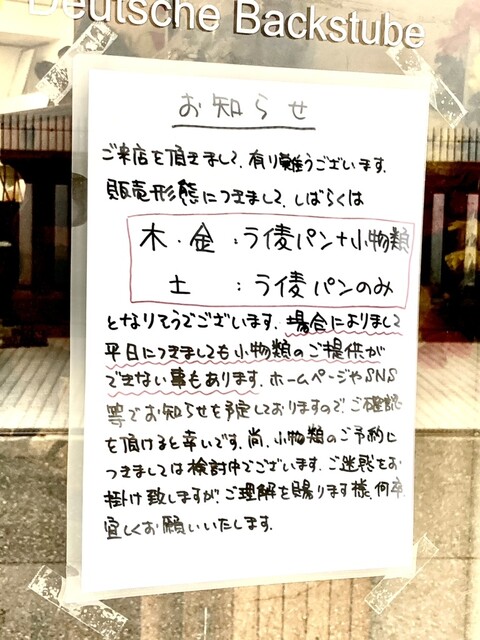 Deutsche Backstube
お知らせ
ご来店を頂きまして、有り難うございます。
販売形態につきまして、しばらくは
木・金:ライ麦パン+小物類
土:ライ麦パンのみ
となりそうでございます。場合によりまして
平日につきましても小物類のご提供が
できない事もあります。ホームページやSNS
等でお知らせを予定しておりますので、ご確認
を頂けると幸いです。尚、小物類のご予約に
つきましては検討中でございます。ご迷惑をお
掛け致しますが、ご理解を賜ります様、何卒
宜しくお願いいたします。